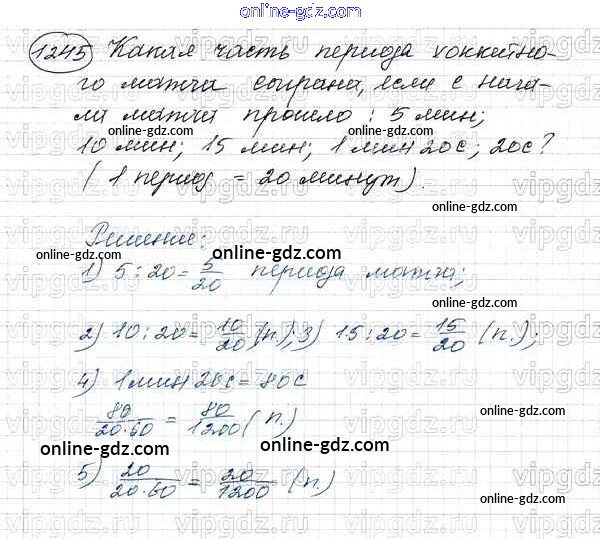 online-gdz.com
1245 Какая часть периода хоккейно-
го матча сыграна, если с нача-
ла матча прошло: 5 мин;
online-gdz.com online-gdz.com
10 мин; 15 мин; 1 мин 20с; 20с?
(1 период = 20 минут).
online-gdz.com
Решение:
online-gdz.com online-gdz.com
1) 5 : 20 = 5/20 периода матча;
online-gdz.com
2) 10 : 20 = 10/20 (п.); 3) 15 : 20 = 15/20 (п.);
online-gdz.com
4) 1 мин 20с = 80с
online-gdz.com
80/20·60 = 80/1200 (п.)
online-gdz.com online-gdz.com
5) 20/20·60 = 20/1200 (п.)
online-gdz.com
online-gdz.com